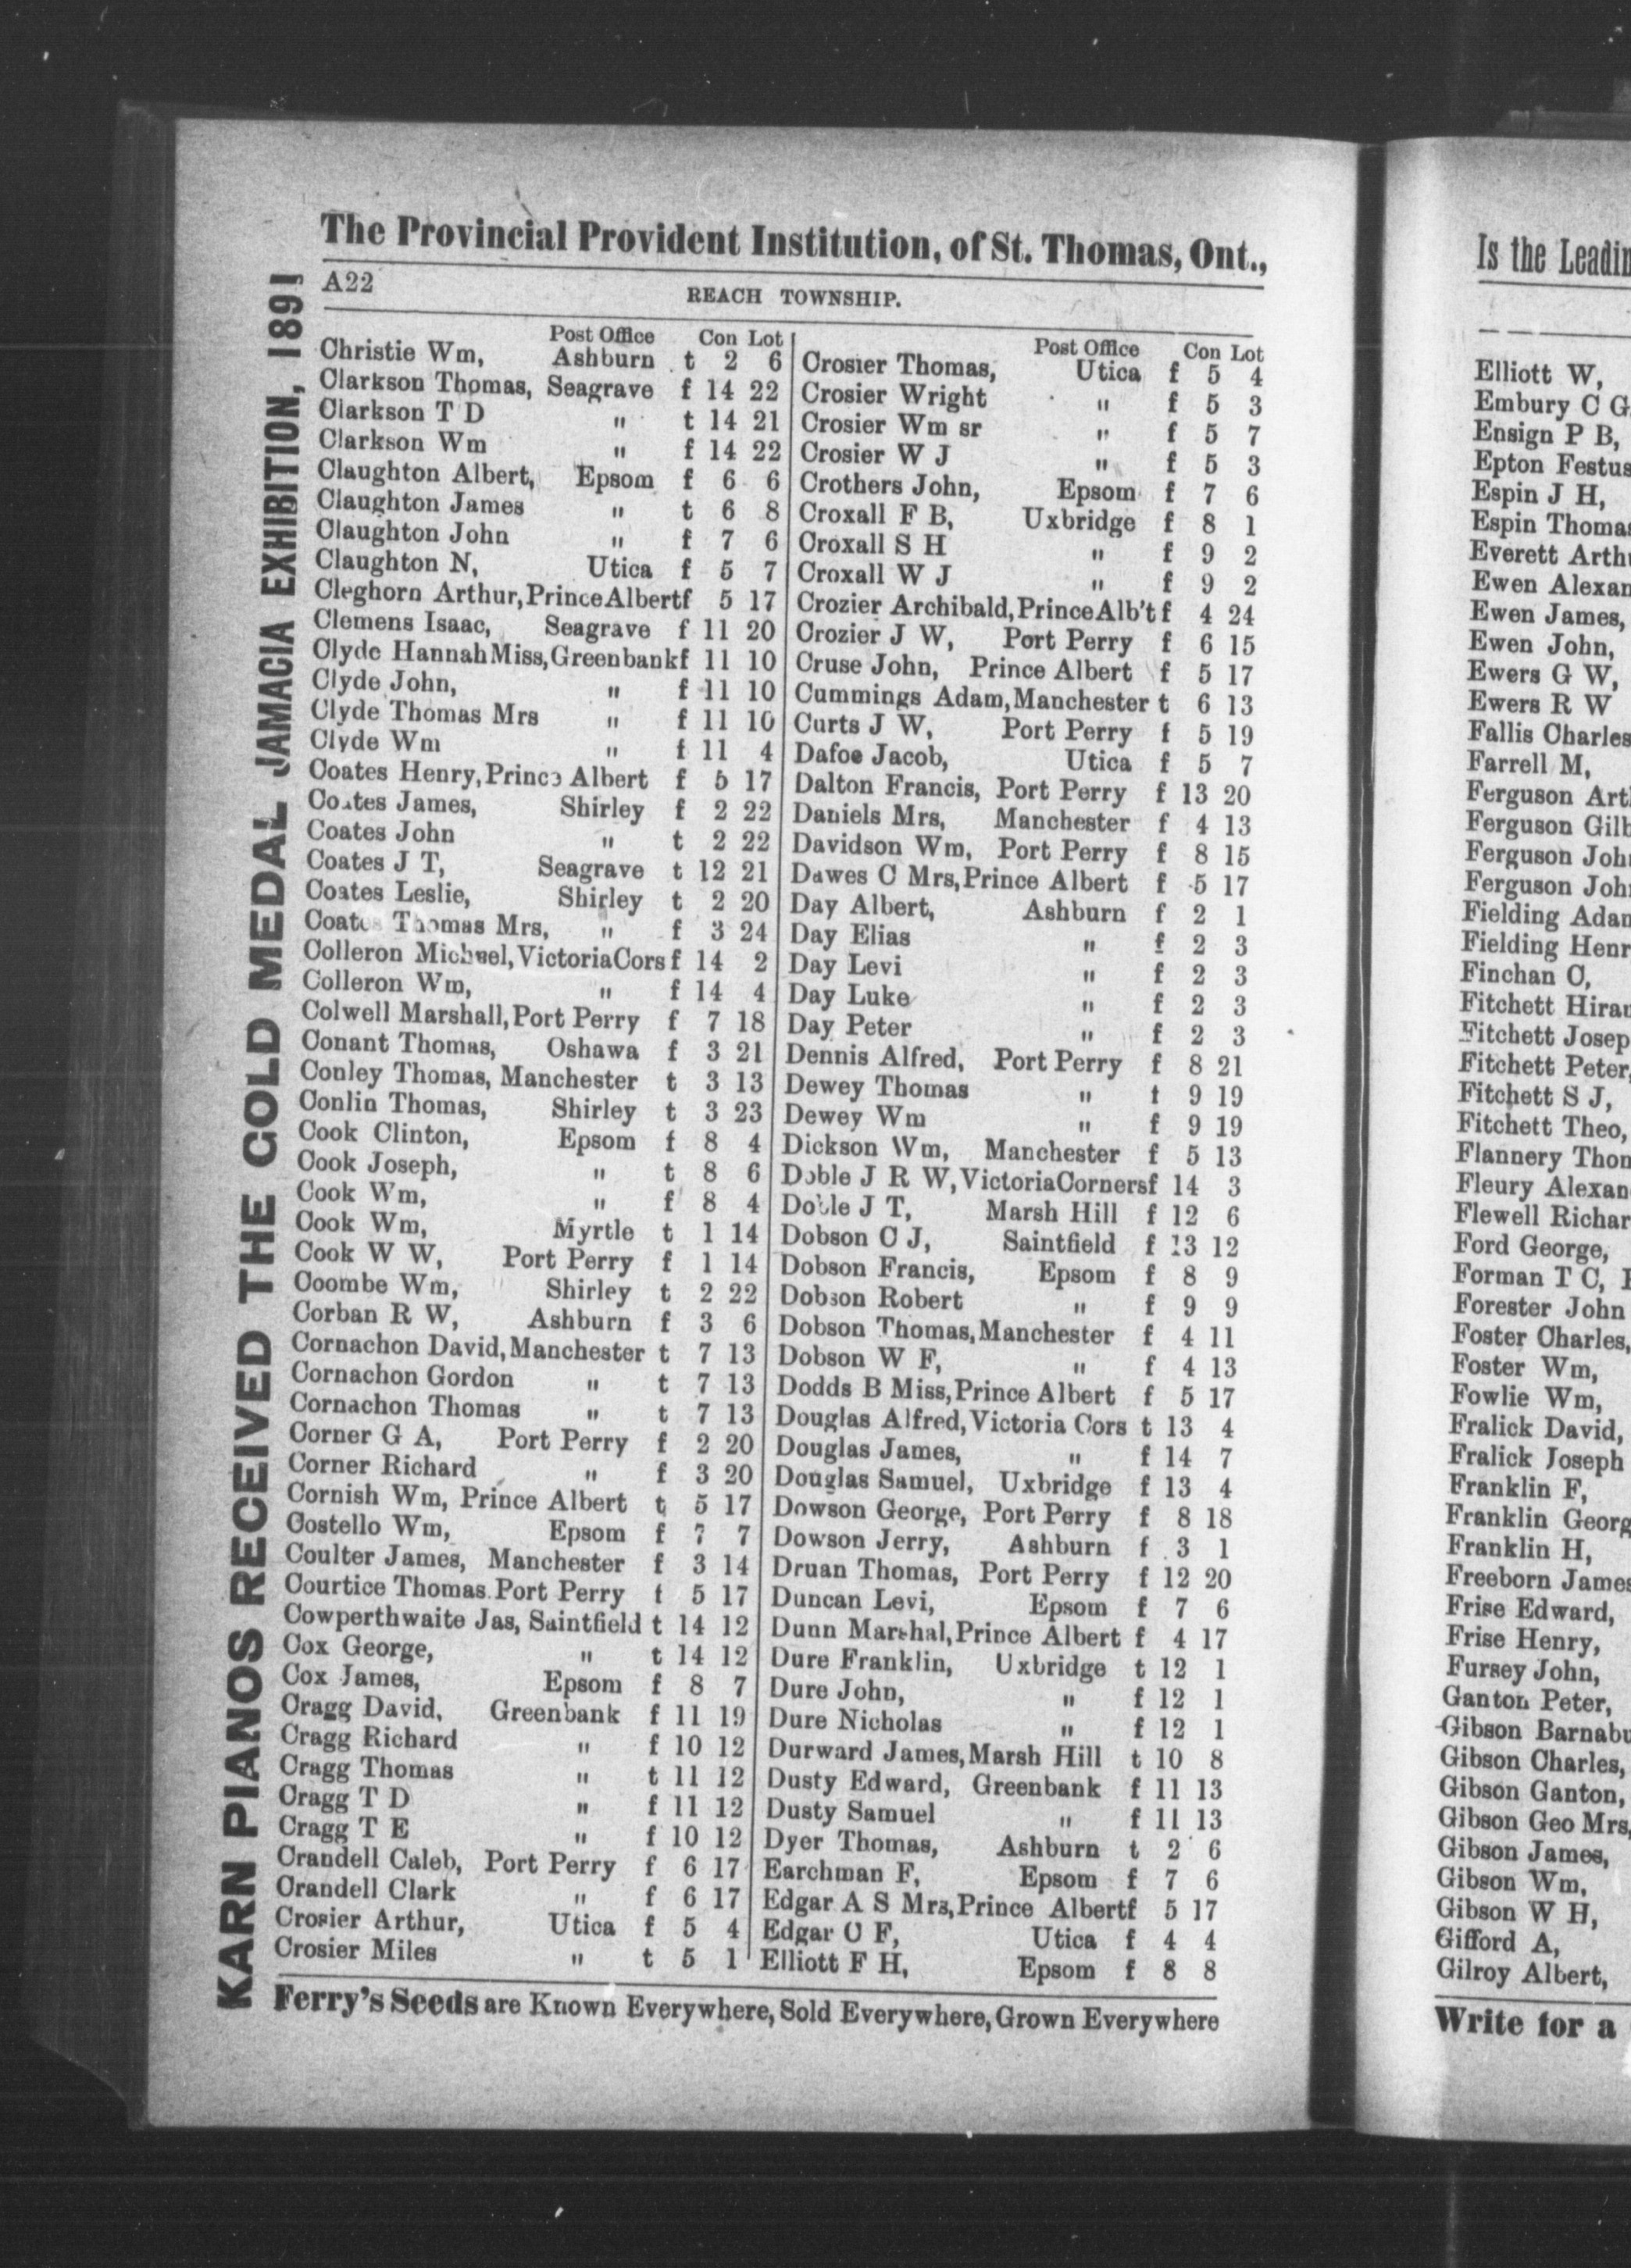 The Provincial Provident Institution, of St. Thomas, Ont.,
A22
REACH TOWNSHIP.
KARN PIANOS RECEIVED THE GOLD MEDAL JAMACIA EXHIBITION, 1891
Post Office Con Lot
Christie Wm, Ashburn t 2 6
Clarkson Thomas, Seagrave f 14 22
Clarkson T D " t 14 21
Clarkson Wm " f 14 22
Claughton Albert, Epsom f 6 6
Claughton James " t 6 8
Claughton John " f 7 6
Claughton N, Utica f 5 7
Cleghorn Arthur, Prince Albert f 5 17
Clemens Isaac, Seagrave f 11 20
Clyde Hannah Miss, Greenbank f 11 10
Clyde John, " f 11 10
Clyde Thomas Mrs " f 11 10
Clyde Wm " f 11 4
Coates Henry, Prince Albert f 5 17
Coates James, Shirley f 2 22
Coates John " t 2 22
Coates J T, Seagrave t 12 21
Coates Leslie, Shirley t 2 20
Coates Thomas Mrs, " f 3 24
Colleron Michael, Victoria Cors f 14 2
Colleron Wm, " f 14 4
Colwell Marshall, Port Perry f 7 18
Conant Thomas, Oshawa f 3 21
Conley Thomas, Manchester t 3 13
Conlin Thomas, Shirley t 3 23
Cook Clinton, Epsom f 8 4
Cook Joseph, " t 8 6
Cook Wm, " f 8 4
Cook Wm, Myrtle t 1 14
Cook W W, Port Perry f 1 14
Coombe Wm, Shirley t 2 22
Corban R W, Ashburn f 3 6
Cornachon David, Manchester t 7 13
Cornachon Gordon " t 7 13
Cornachon Thomas " t 7 13
Corner G A, Port Perry f 2 20
Corner Richard " f 3 20
Cornish Wm, Prince Albert t 5 17
Costello Wm, Epsom f 7 7
Coulter James, Manchester f 3 14
Courtice Thomas. Port Perry f 5 17
Cowperthwaite Jas, Saintfield t 14 12
Cox George, " t 14 12
Cox James, Epsom f 8 7
Cragg David, Greenbank f 11 19
Cragg Richard " f 10 12
Cragg Thomas " t 11 12
Cragg T D " f 11 12
Cragg T E " f 10 12
Crandell Caleb, Port Perry f 6 17
Crandell Clark " f 6 17
Crosier Arthur, Utica f 5 4
Crosier Miles " t 5 1
Post Office Con Lot
Crosier Thomas, Utica f 5 4
Crosier Wright " f 5 3
Crosier Wm sr " f 5 7
Crosier W J " f 5 3
Crothers John, Epsom f 7 6
Croxall F B, Uxbridge f 8 1
Croxall S H " f 9 2
Croxall W J " f 9 2
Crozier Archibald, Prince Alb't f 4 24
Crozier J W, Port Perry f 6 15
Cruse John, Prince Albert f 5 17
Cummings Adam, Manchester t 6 13
Curts J W, Port Perry f 5 19
Dafoe Jacob, Utica f 5 7
Dalton Francis, Port Perry f 13 20
Daniels Mrs, Manchester f 4 13
Davidson Wm, Port Perry f 8 15
Dawes C Mrs, Prince Albert f 5 17
Day Albert, Ashburn f 2 1
Day Elias " f 2 3
Day Levi " f 2 3
Day Luke " f 2 3
Day Peter " f 2 3
Dennis Alfred, Port Perry f 8 21
Dewey Thomas " t 9 19
Dewey Wm " f 9 19
Dickson Wm, Manchester f 5 13
Doble J R W, Victoria Corners f 14 3
Doble J T, Marsh Hill f 12 6
Dobson C J, Saintfield f 13 12
Dobson Francis, Epsom f 8 9
Dobson Robert " f 9 9
Dobson Thomas, Manchester f 4 11
Dobson W F, " f 4 13
Dodds B Miss, Prince Albert f 5 17
Douglas Alfred, Victoria Cors t 13 4
Douglas James, " f 14 7
Douglas Samuel, Uxbridge f 13 4
Dowson George, Port Perry f 8 18
Dowson Jerry, Ashburn f 3 1
Druan Thomas, Port Perry f 12 20
Duncan Levi, Epsom f 7 6
Dunn Marshal, Prince Albert f 4 17
Dure Franklin, Uxbridge t 12 1
Dure John, " f 12 1
Dure Nicholas " f 12 1
Durward James, Marsh Hill t 10 8
Dusty Edward, Greenbank f 11 13
Dusty Samuel " f 11 13
Dyer Thomas, Ashburn t 2 6
Earchman F, Epsom f 7 6
Edgar A S Mrs, Prince Albert f 5 17
Edgar C F, Utica f 4 4
Elliott F H, Epsom f 8 8
Ferry's Seeds are Known Everywhere, Sold Everywhere, Grown Everywhere
Is the
Elliott W,
Embury C G
Ensign P B,
Epton Festus
Espin J H,
Espin Thomas
Everett
Ewen
Ewen James,
Ewen John,
Ewers G W,
Ewers R W
Fallis Charles
Farrell M,
Ferguson
Ferguson
Ferguson
Ferguson
Fielding
Fielding
Finchan C,
Fitchett
Fitchett
Fitchett Peter,
Fitchett S J,
Fitchett Theo,
Flannery
Fleury
Flewell
Ford George,
Forman T C,
Forester John
Foster Charles,
Foster Wm,
Fowlie Wm,
Fralick David,
Fralick Joseph
Franklin F,
Franklin
Franklin H,
Freeborn James
Frise Edward,
Frise Henry,
Fursey John,
Ganton Peter,
Gibson
Gibson Charles,
Gibson Ganton,
Gibson Geo Mrs,
Gibson James,
Gibson Wm,
Gibson W H,
Gifford A,
Gilroy Albert,
Write for a